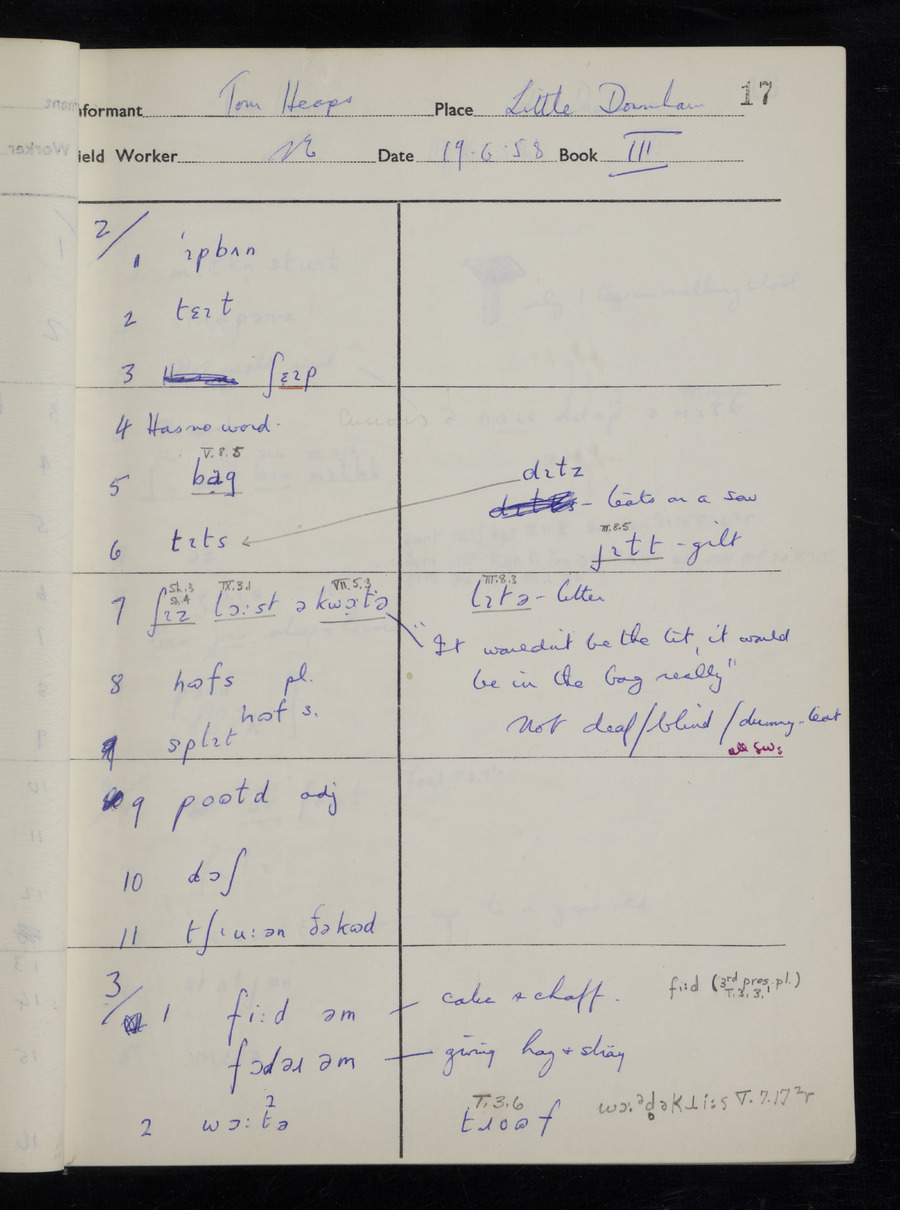 nformant Tom Heaps Place Little Downham 17
ield Worker Date 19.6.58 Book III
2/
1 ˈɪpbʌn
2 tɛɪt
3 ʃɛɪp
4 Has no word.
V.8.5
5 bag
dɪtz
– teats on a sow
6 tɪts
III.8.5
ɟɪtt – gilt
7 Sh.3 Sh.4 IX.3.1 VII.5.3
ʃɪz lɔːst ə kwɔːtə
III.8.3
lɪtə – litter
"It wouldn't be the tit, it would
be in the bag really"
8 hɷfs pl.
hɷf s.
Not deaf/blind/dummy-teat
all S.W.s
splɪt
9 poɷtd adj
10 dɔʃ
11 tʃɩuːən ðəkɷd
3/
1 fiːd əm – cake & chaff.
fiːd (3rd pres. pl.)
V.3.3.1
fɔdəɹ əm – giving hay & straw
2 wɔːtə
V.3.6
tɹoɷf
V.7.17